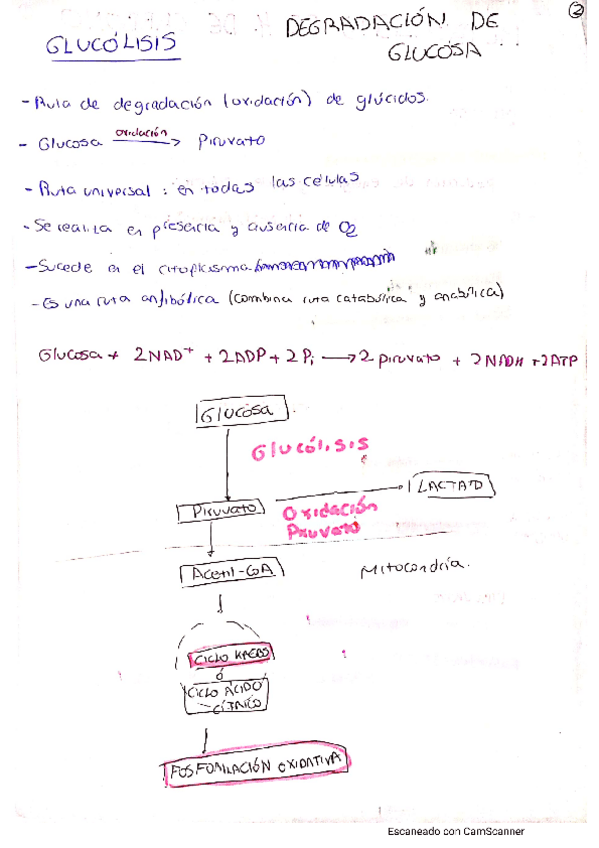 ②
GLUCÓLISIS
DEGRADACIÓN DE
GLUCOSA
- Ruta de degradación (oxidación) de glúcidos.
- Glucosa oxidación → Piruvato
- Ruta universal : en todas las células
- Se realiza en presencia y ausencia de O2
- Sucede en el citoplasma
- Es una ruta anfibólica (combina ruta catabólica y anabólica)
Glucosa + 2NAD+ + 2ADP + 2Pi → 2 piruvato + 2NADH + 2ATP
Glucosa
Glucólisis
Piruvato
LACTATO
Oxidación
Piruvato
Acetil-CoA
Mitocondria.
CICLO KREBS
ó
CICLO ÁCIDO
CÍTRICO
FOSFORILACIÓN OXIDATIVA
Escaneado con CamScanner